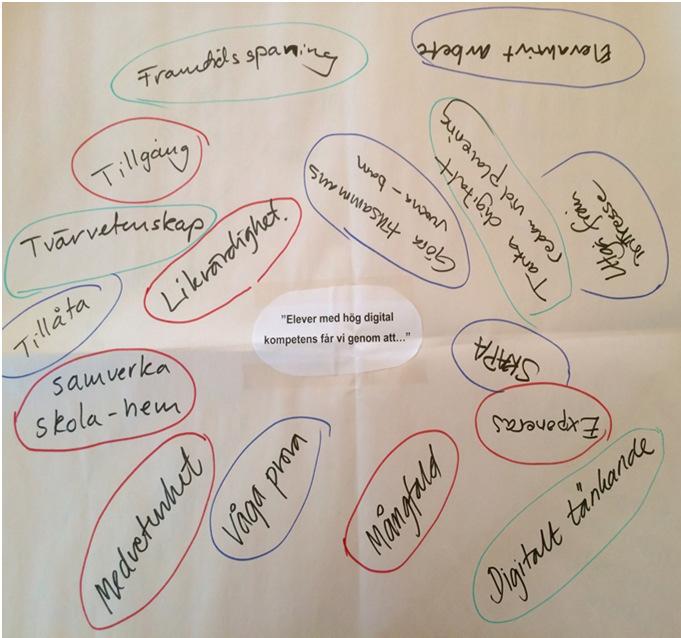 Framtidsspaning
Elevaktivt arbete
Tillgång
Göra tillsammans
vuxna - barn
Tänka digitalt
redan vid planering
Utgå från
intresse
Tvärvetenskap
Likvärdighet.
Tillåta
"Elever med hög digital
kompetens får vi genom att..."
SKAPA
samverka
skola-hem
Exponeras
Medvetenhet
Våga prova
Mångfald
Digitalt tänkande